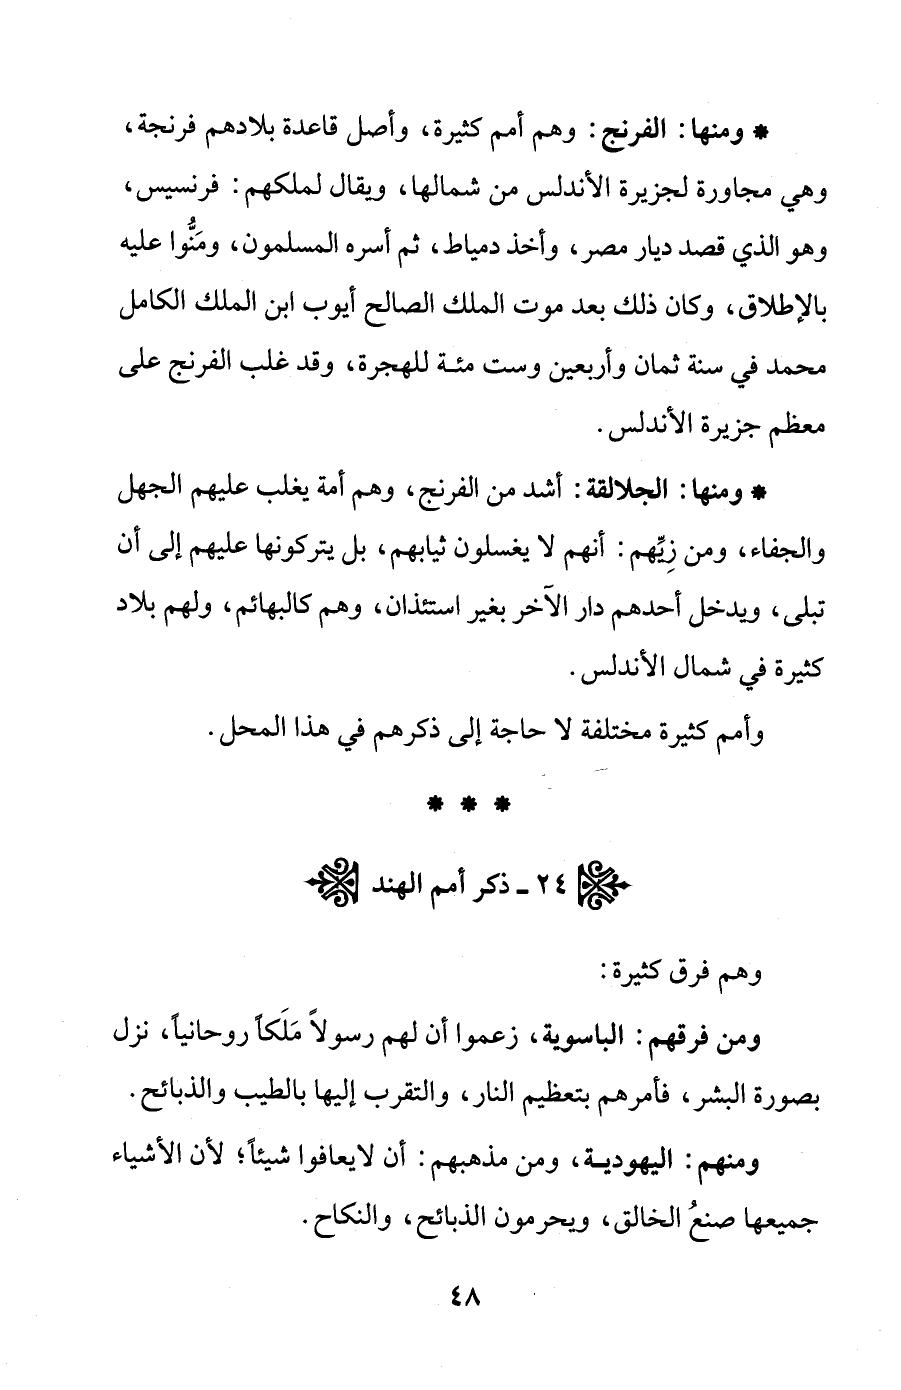 * ومنها: الفرنج: وهم أمم كثيرة، وأصل قاعدة بلادهم فرنجة،
وهي مجاورة لجزيرة الأندلس من شمالها، ويقال لملكهم: فرنسيس،
وهو الذي قصد ديار مصر، وأخذ دمياط، ثم أسره المسلمون، ومَنُّوا عليه
بالإطلاق، وكان ذلك بعد موت الملك الصالح أيوب ابن الملك الكامل
محمد في سنة ثمان وأربعين وست مئة للهجرة، وقد غلب الفرنج على
معظم جزيرة الأندلس.
* ومنها: الجلالقة: أشد من الفرنج، وهم أمة يغلب عليهم الجهل
والجفاء، ومن زِيِّهم: أنهم لا يغسلون ثيابهم، بل يتركونها عليهم إلى أن
تبلى، ويدخل أحدهم دار الآخر بغير استئذان، وهم كالبهائم، ولهم بلاد
كثيرة في شمال الأندلس.
وأمم كثيرة مختلفة لا حاجة إلى ذكرهم في هذا المحل.
* * *
٢٤ - ذكر أمم الهند
وهم فرق كثيرة:
ومن فرقهم: الباسوية، زعموا أن لهم رسولاً مَلَكاً روحانياً، نزل
بصورة البشر، فأمرهم بتعظيم النار، والتقرب إليها بالطيب والذبائح.
ومنهم: اليهودية، ومن مذهبهم: أن لايعافوا شيئاً؛ لأن الأشياء
جميعها صنعُ الخالق، ويحرمون الذبائح، والنكاح.
٤٨